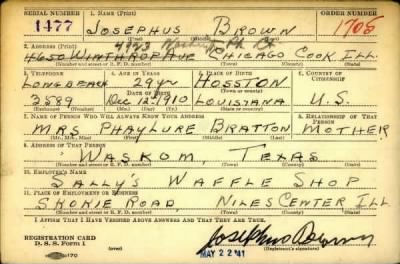 SERIAL NUMBER 1. NAME (Print) ORDER NUMBER
1477 JOSEPHUS BROWN 1705
(First) (Middle) (Last)
4943 Washington Pk Ct
2. ADDRESS (Print)
4650 WINTHROP AVE CHICAGO COOK ILL.
(Number and street or R. F. D. number) (Town) (County) (State)
3. TELEPHONE 4. AGE IN YEARS 5. PLACE OF BIRTH 6. COUNTRY OF CITIZENSHIP
LONGBEACH 29 HOSSTON
DATE OF BIRTH (Town or county)
3589 DEC 12 1910 LOUISIANA U.S.
(Exchange) (Number) (Mo.) (Day) (Yr.) (State or country)
7. NAME OF PERSON WHO WILL ALWAYS KNOW YOUR ADDRESS 8. RELATIONSHIP OF THAT PERSON
MRS PHAYLURE BRATTON MOTHER
(Mr., Mrs., Miss) (First) (Middle) (Last)
9. ADDRESS OF THAT PERSON
WASKOM, TEXAS
(Number and street or R. F. D. number) (Town) (County) (State)
10. EMPLOYER'S NAME
SALLY'S WAFFLE SHOP
11. PLACE OF EMPLOYMENT OR BUSINESS
SKOKIE ROAD, NILES CENTER ILL
(Number and street or R. F. D. number) (Town) (County) (State)
I AFFIRM THAT I HAVE VERIFIED ABOVE ANSWERS AND THAT THEY ARE TRUE.
REGISTRATION CARD
D. S. S. Form 1 Josephus Brown
MAY 22 '41 (Registrant's signature)